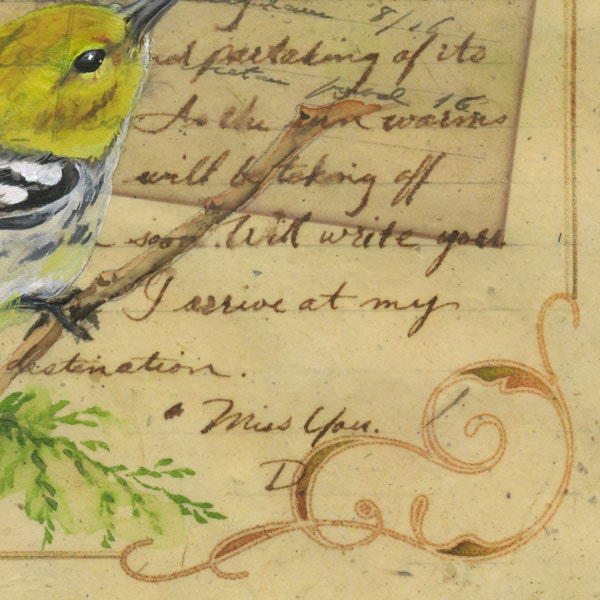 8/16
nd partaking of its
16
As the sun warms
will be taking off
soon. Will write you
I arrive at my
destination.
Miss You.
D